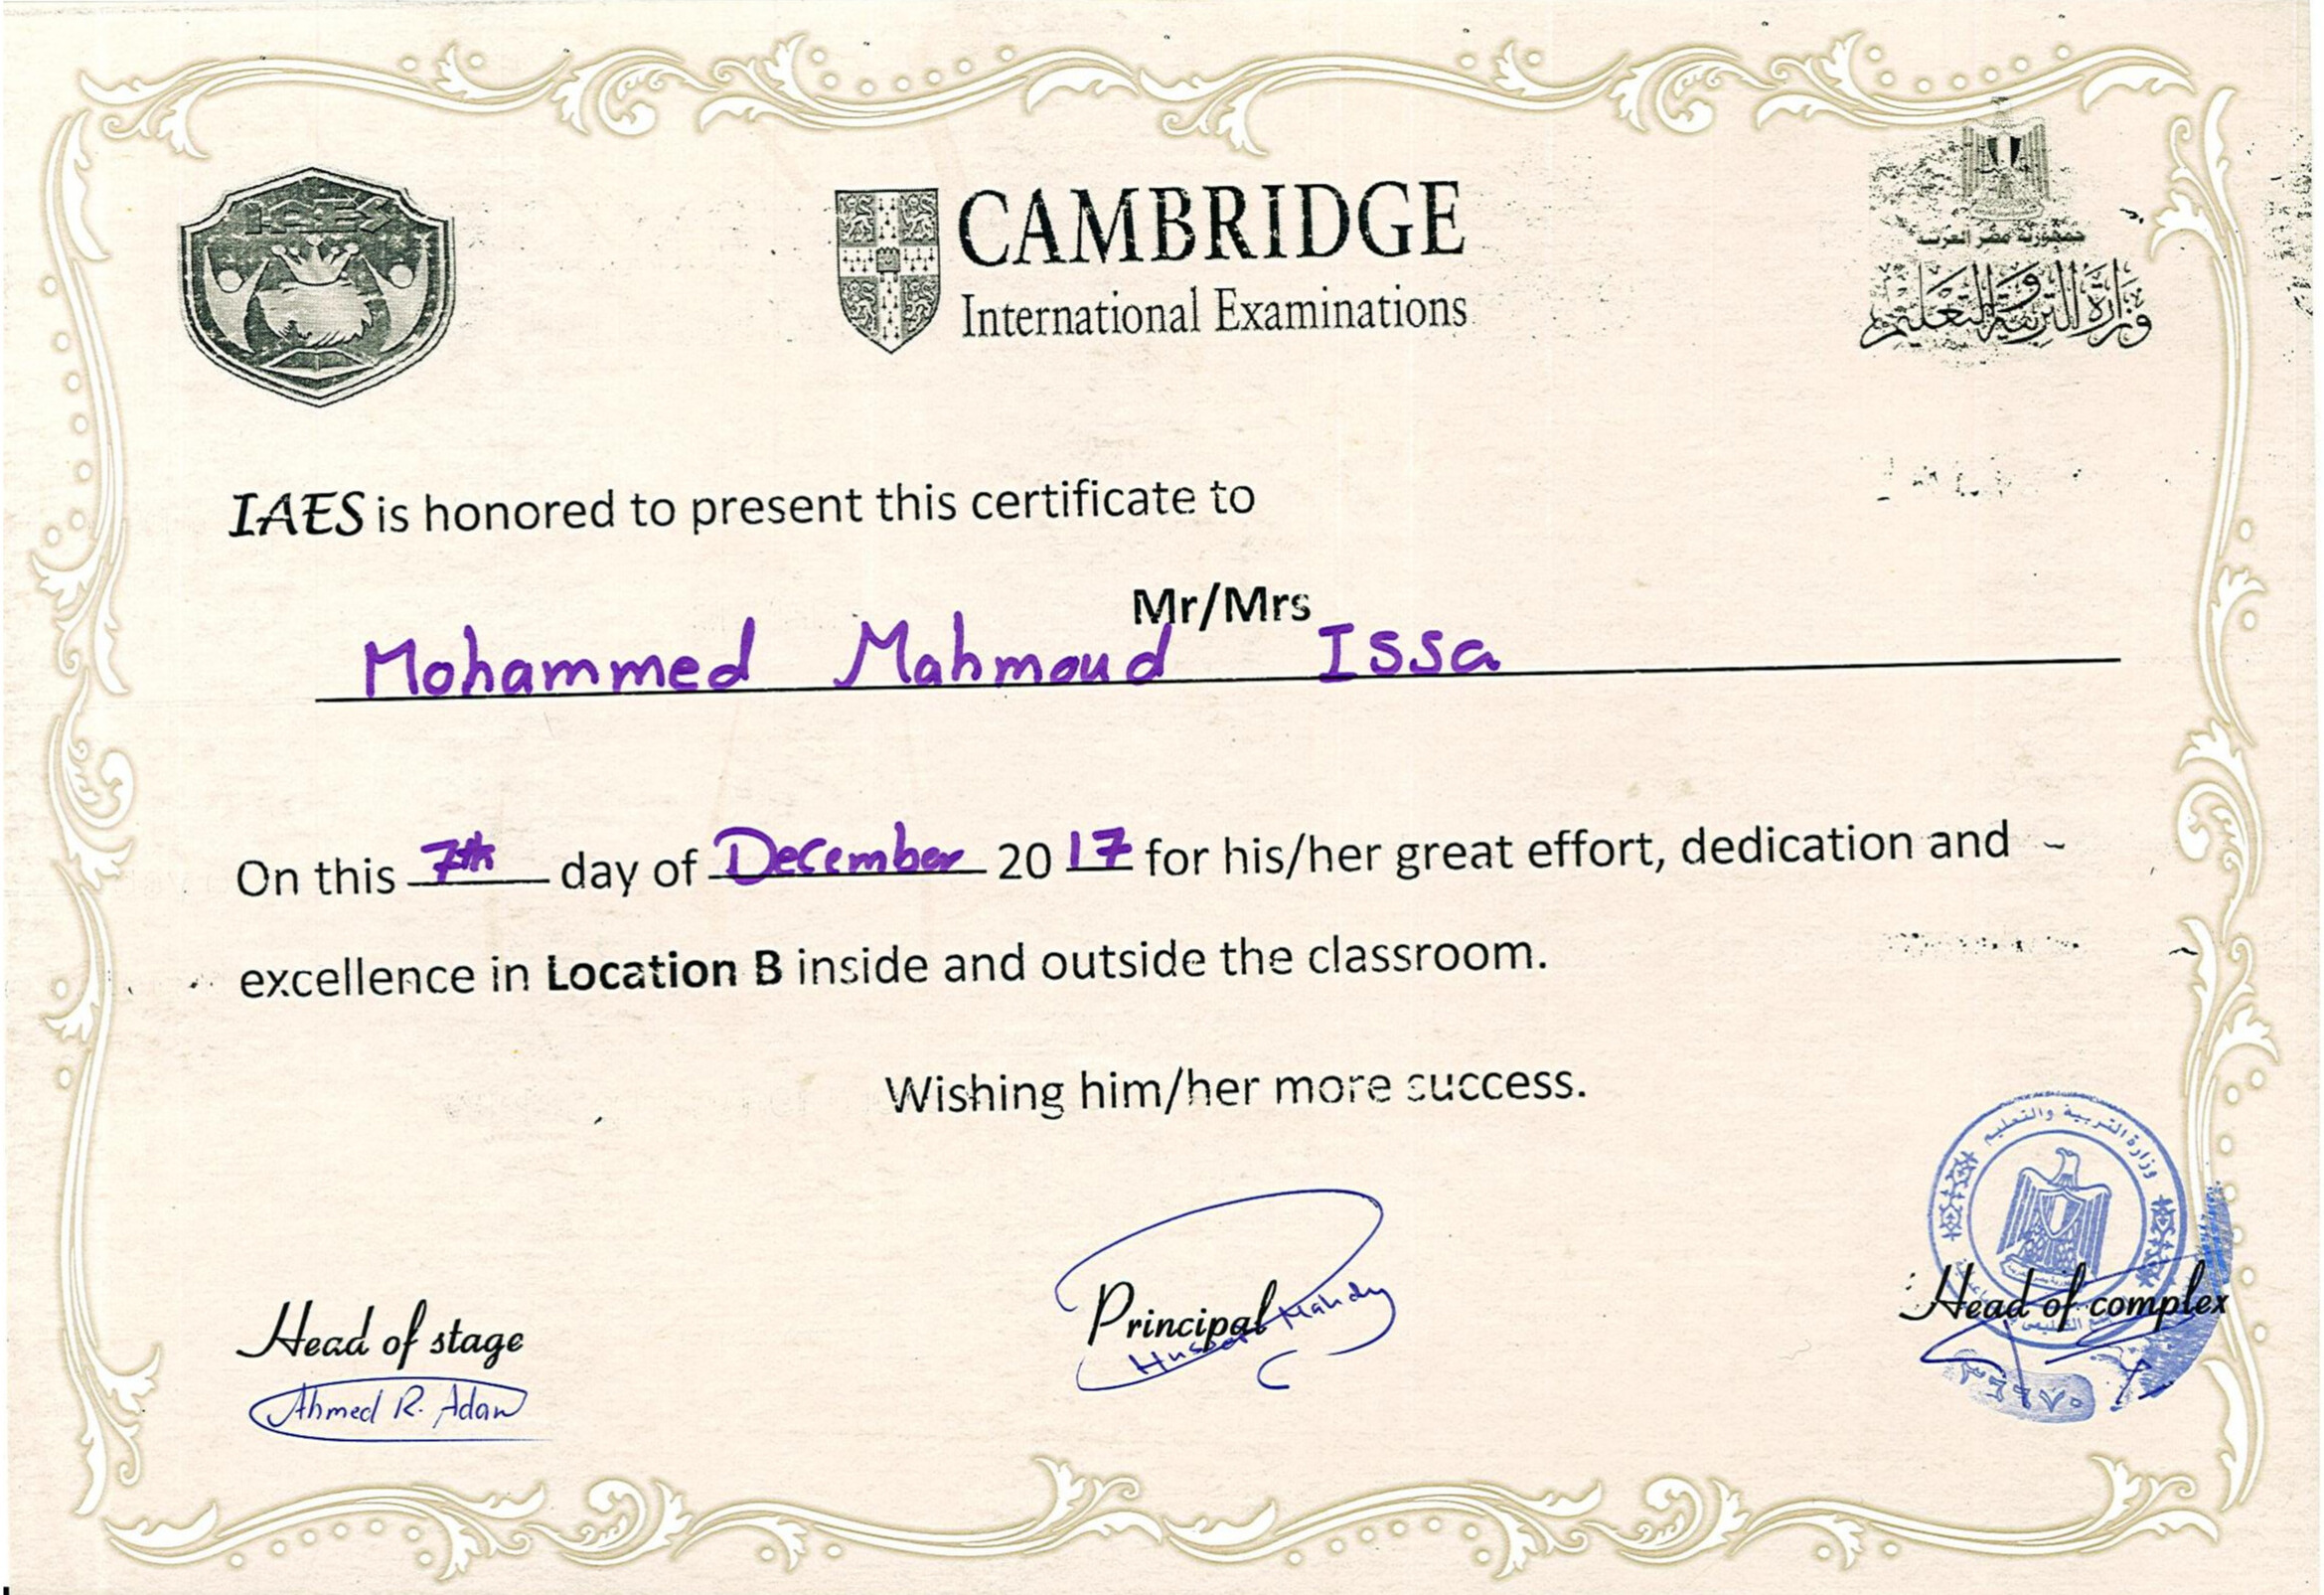 IAES
CAMBRIDGE
International Examinations
جمهورية مصر العربية
وزارة التربية والتعليم
IAES is honored to present this certificate to
Mr/Mrs
Mohammed Mahmoud Issa
On this 7th day of December 2017 for his/her great effort, dedication and
excellence in Location B inside and outside the classroom.
Wishing him/her more success.
وزارة التربية والتعليم
Head of stage
Principal
Head of complex
Ahmed R. Adam
Mahdy